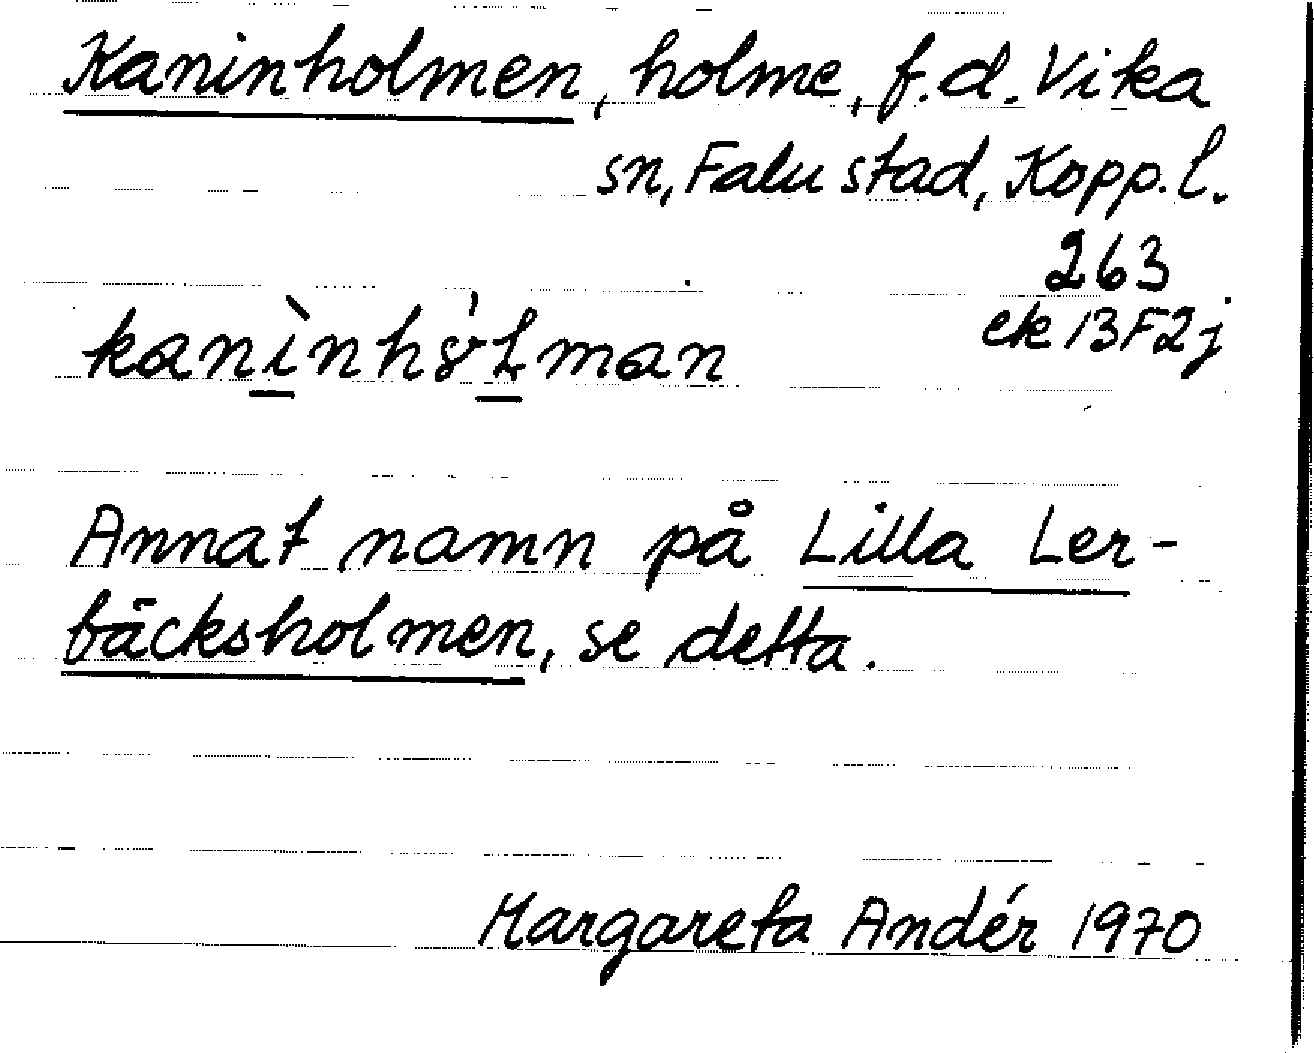 Kaninholmen, holme, f.d. Vika
sn, Falu stad, Kopp. l.
263
ek 13F2j
kanìnhȣ́Lman
Annat namn på Lilla Ler-
bäcksholmen, se detta.
Margareta Andér 1970